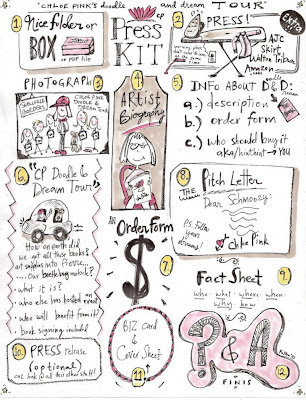 "CHLOE PINK'S doodle and dream TOUR"
1 Nice folder or
BOX
or PDF file
CP
Press
KIT
2 PRESS!
AJC
Skirt
Walton Tribune
Amazon
PHOTOGRAPHS 3
CHLOE PINK
DOODLE &
DREAM TOUR
4
ARTIST
Biography
5 INFO ABOUT D&D:
a.) description
b.) order form
c.) who should buy it
aka/hint hint → YOU
6 "CP Doodle &
Dream Tour"
How on earth did
we get all these books?
Our bookelong mobile?
what it is?
who else has hosted
who will benefit from it?
book signing included
An Order Form
$
7
8. Pitch Letter
THE
Dear Schmoozy!
P.S. Follow
your
dreams!
Chloe Pink
Fact Sheet 9.
who what where when
why
10. PRESS release
(optional)
BIZ CARD
&
Cover Sheet
11
? & A
12
FINIS